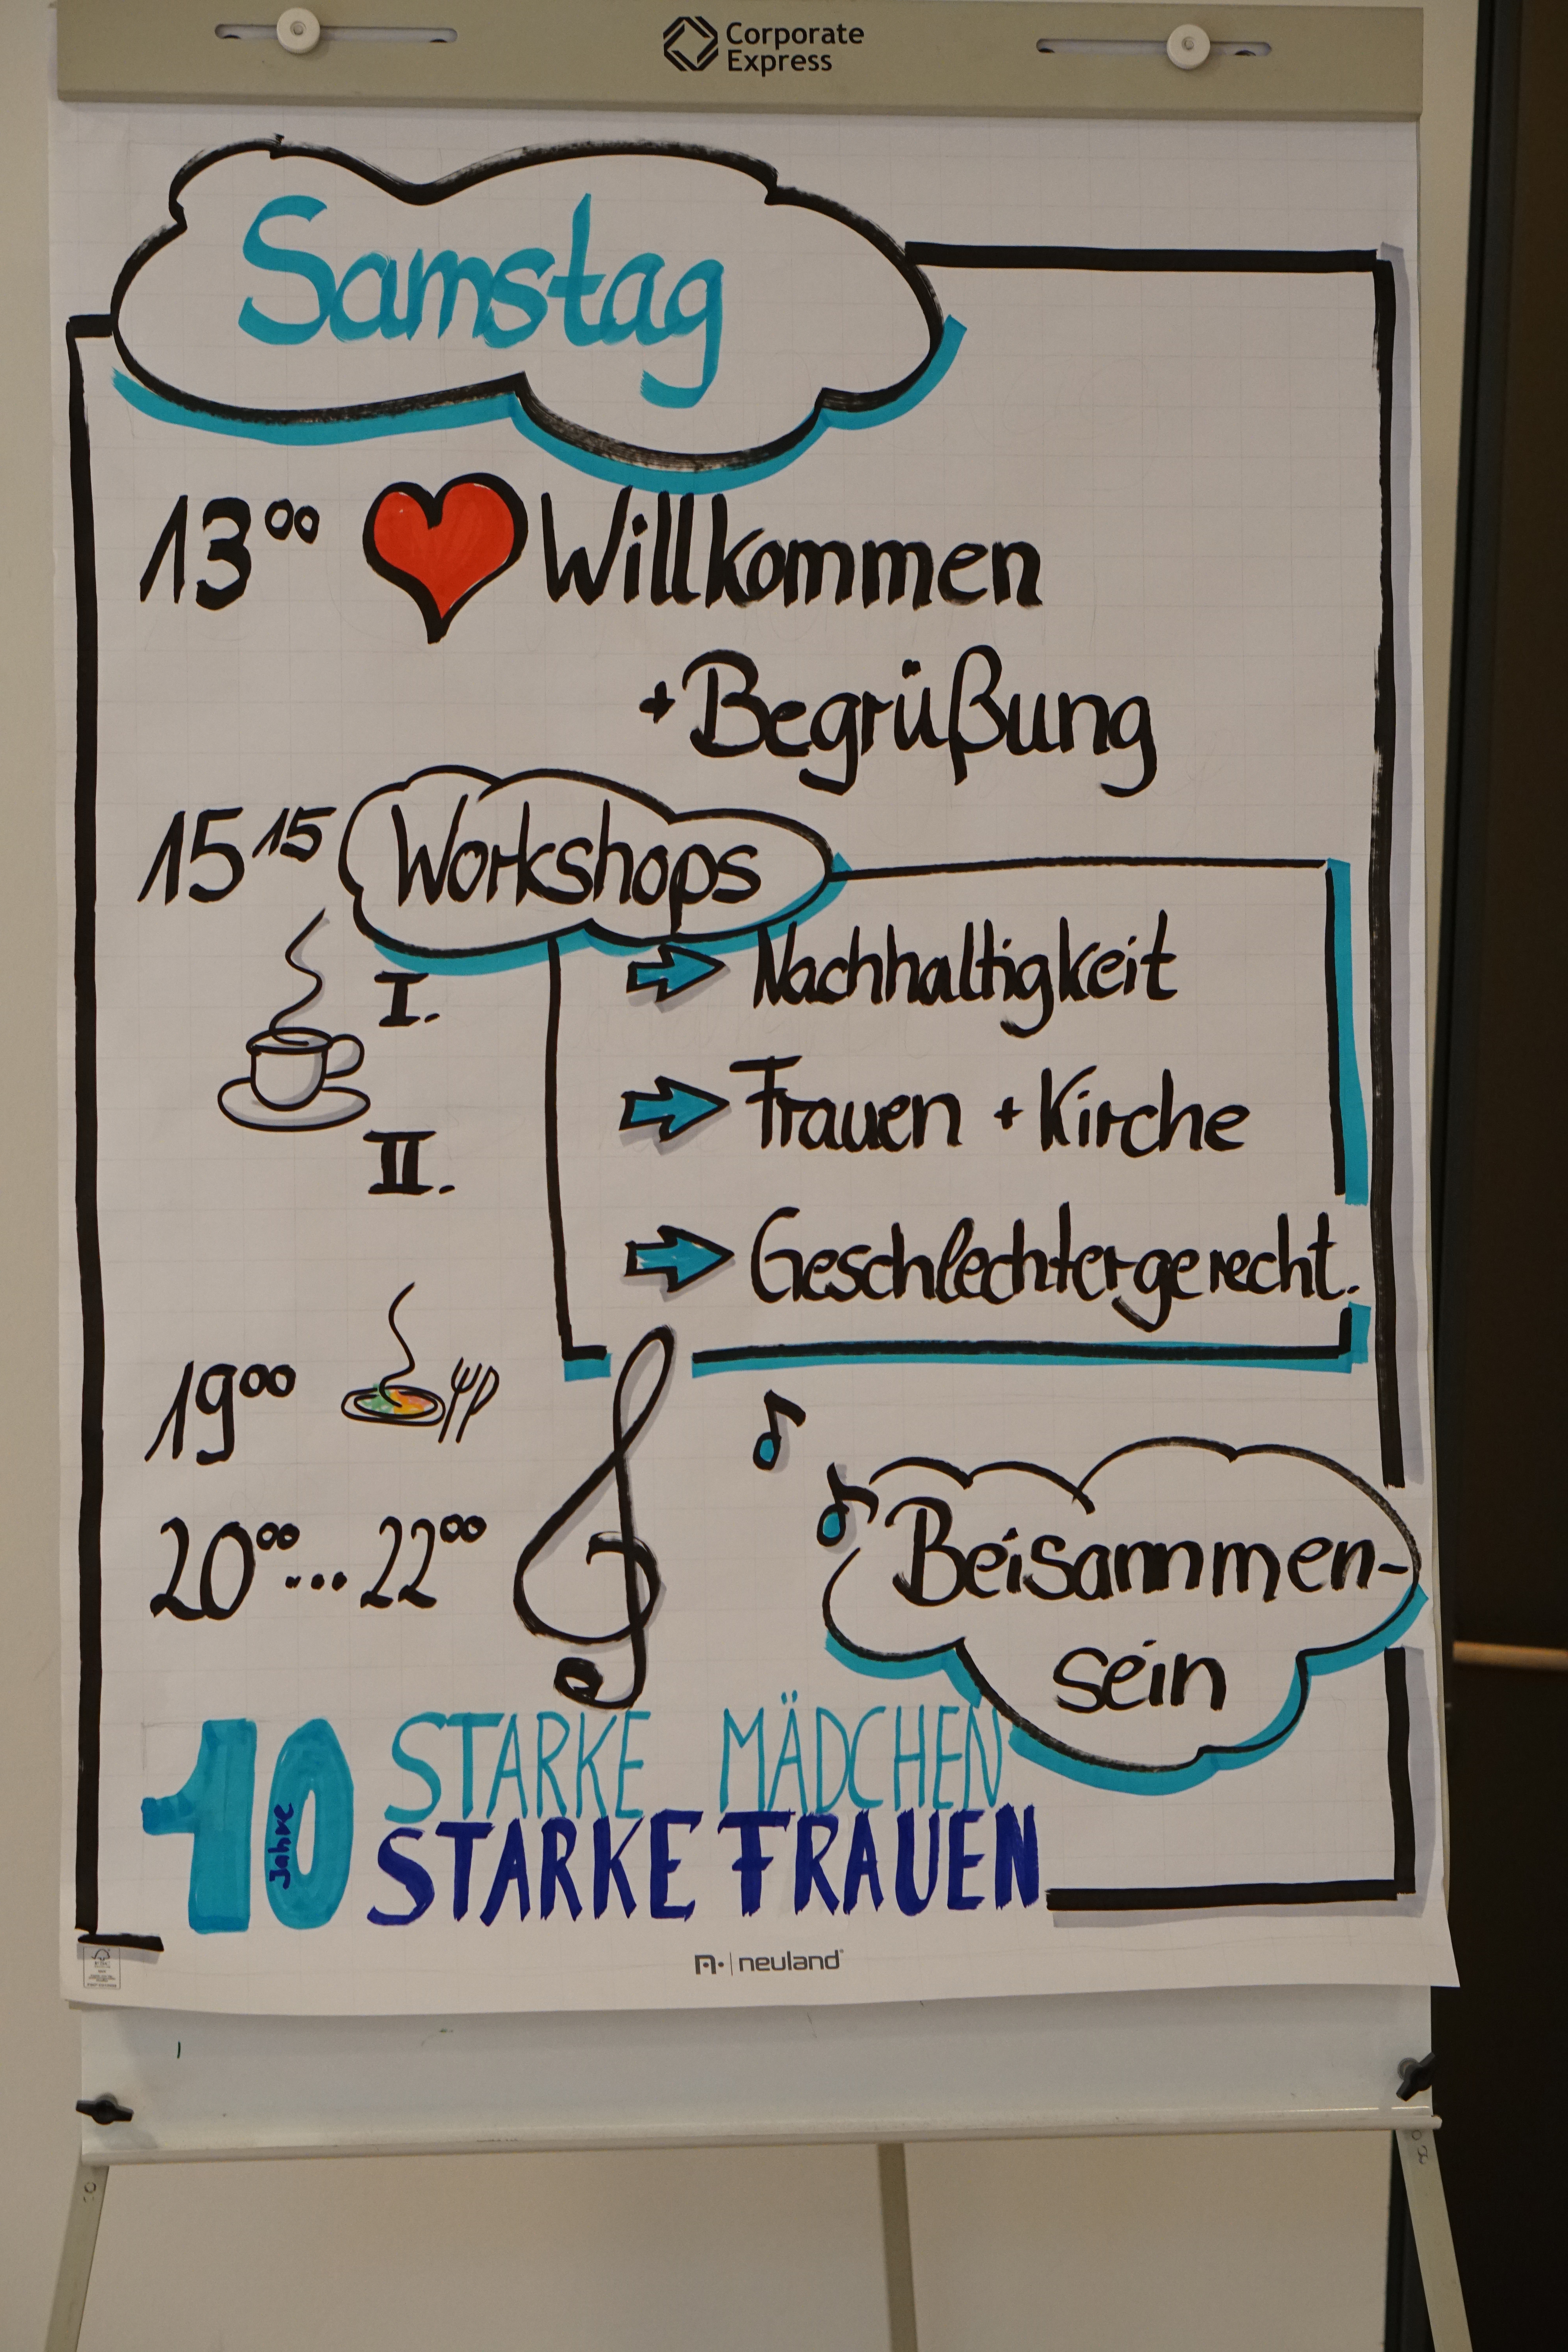 Corporate
Express
Samstag
13⁰⁰ Willkommen
+ Begrüßung
15¹⁵ Workshops
I.
→ Nachhaltigkeit
→ Frauen + Kirche
II.
→ Geschlechtergerecht.
19⁰⁰
20⁰⁰...22⁰⁰
Beisammen-
sein
10 Jahre
STARKE MÄDCHEN
STARKE FRAUEN
neuland